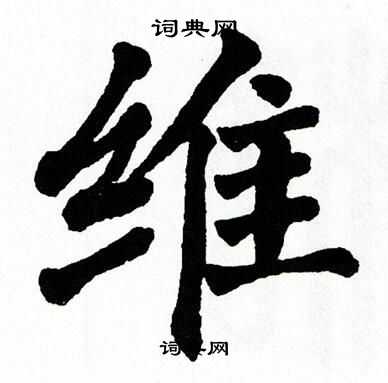 词典网
维
词典网